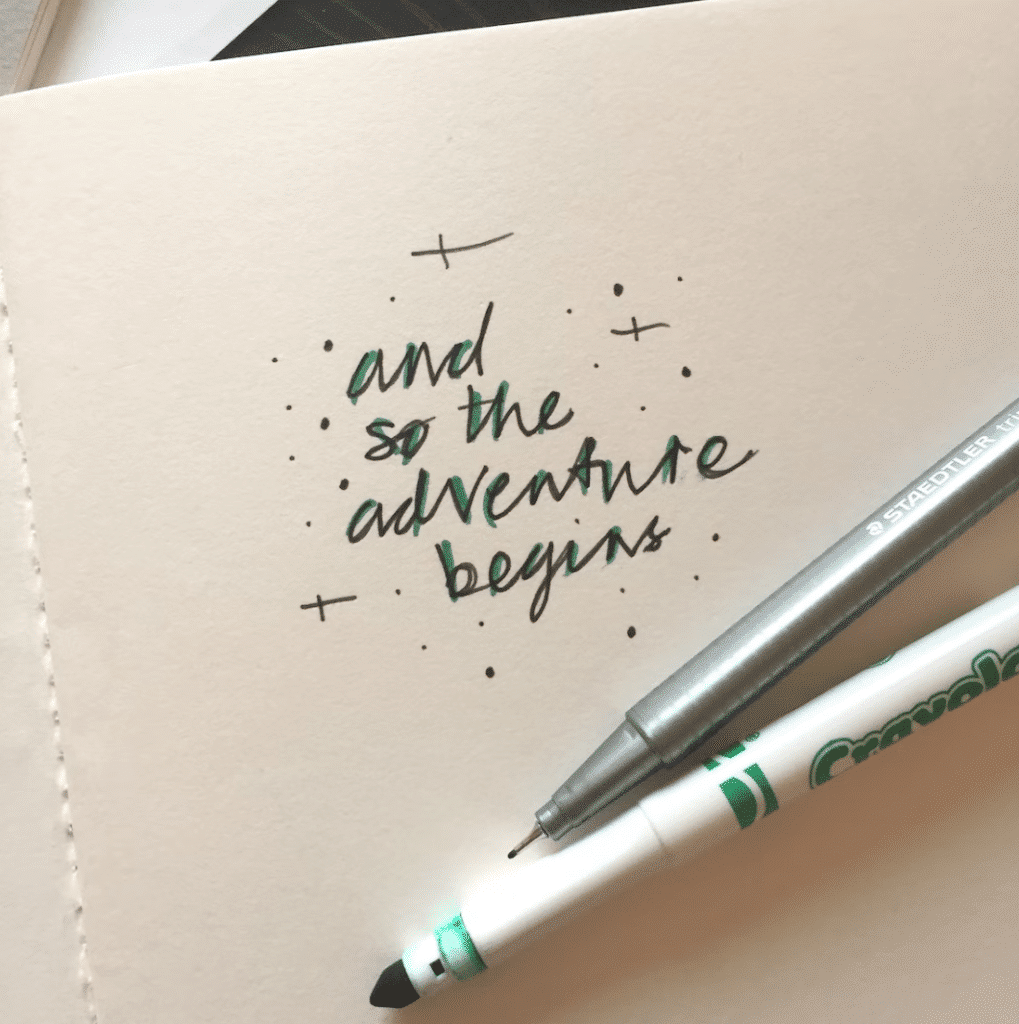 and
so the
adventure
begins
STAEDTLER tri
Crayola